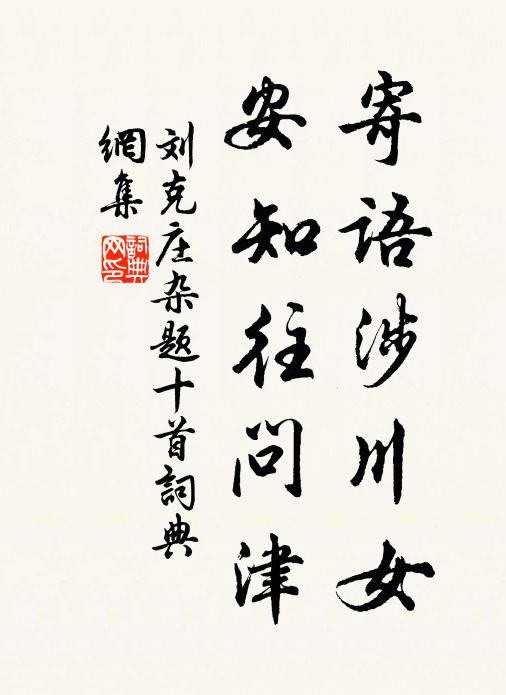 寄语涉川女
安知往问津
刘克庄杂题十首词典
網集
詞典网印